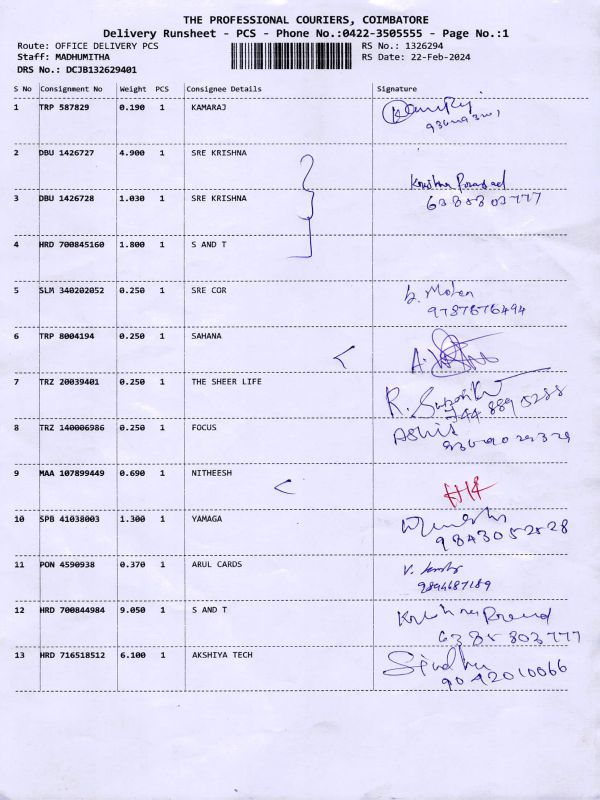 THE PROFESSIONAL COURIERS, COIMBATORE
Delivery Runsheet - PCS - Phone No.:0422-3505555 - Page No.:1
Route: OFFICE DELIVERY PCS RS No.: 1326294
Staff: MADHUMITHA RS Date: 22-Feb-2024
DRS No.: DCJB132629401
S No Consignment No Weight PCS Consignee Details Signature
1 TRP 587829 0.190 1 KAMARAJ
2 DBU 1426727 4.900 1 SRE KRISHNA
Krishna Prasad
3 DBU 1426728 1.030 1 SRE KRISHNA 6385803777
4 HRD 700845160 1.800 1 S AND T
5 SLM 340202052 0.250 1 SRE COR
9787676494
6 TRP 8004194 0.250 1 SAHANA
7 TRZ 20039401 0.250 1 THE SHEER LIFE
8 TRZ 140006986 0.250 1 FOCUS
9 MAA 107899449 0.690 1 NITHEESH
10 SPB 41038003 1.300 1 YAMAGA
9843052528
11 PON 4590938 0.370 1 ARUL CARDS
9894687189
12 HRD 700844984 9.050 1 S AND T Krishna Prasad
6385803777
13 HRD 716518512 6.100 1 AKSHIYA TECH Sindhu
9042010066